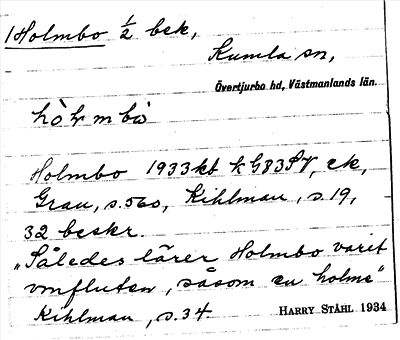 1Holmbo ½ bek,
Kumla sn,
Övertjurbo hd, Västmanlands län.
Holmbo 1933 kb k G83SV, ek,
Grau, s. 560, Kihlman, s. 19,
32 beskr.
„Således lärer Holmbo varit
omfluten, såsom en holme"
Kihlman, s. 34
HARRY STÅHL 1934